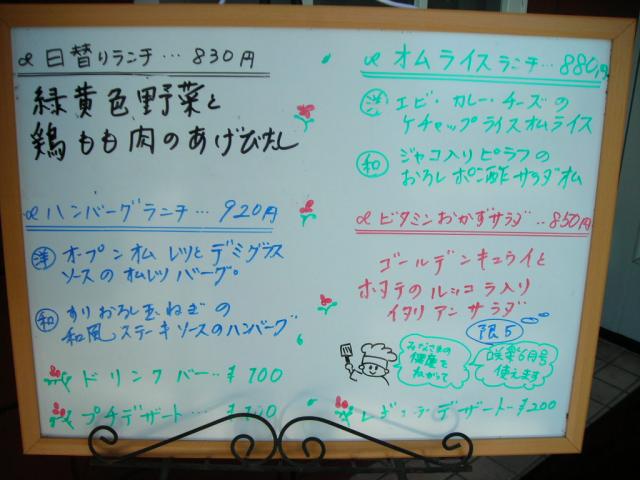 日替りランチ…830円
緑黄色野菜と
鶏もも肉のあげびたし
ハンバーグランチ…920円
洋 オープンオムレツとデミグラス
ソースのオムレツバーグ。
和 すりおろし玉ねぎの
和風ステーキソースのハンバーグ
ドリンクバー…¥100
プチデザート…
オムライスランチ…880円
洋 エビ・カレー・チーズの
ケチャップライスオムライス
和 ジャコ入りピラフの
おろしポン酢サラダオム
ビタミンおかずサラダ..850円
ゴールデンキュウイと
ホタテのルッコラ入り
イタリアンサラダ
限5
みなさまの
健康を
ねがって
咲楽5月号
使えます
デザート…¥200